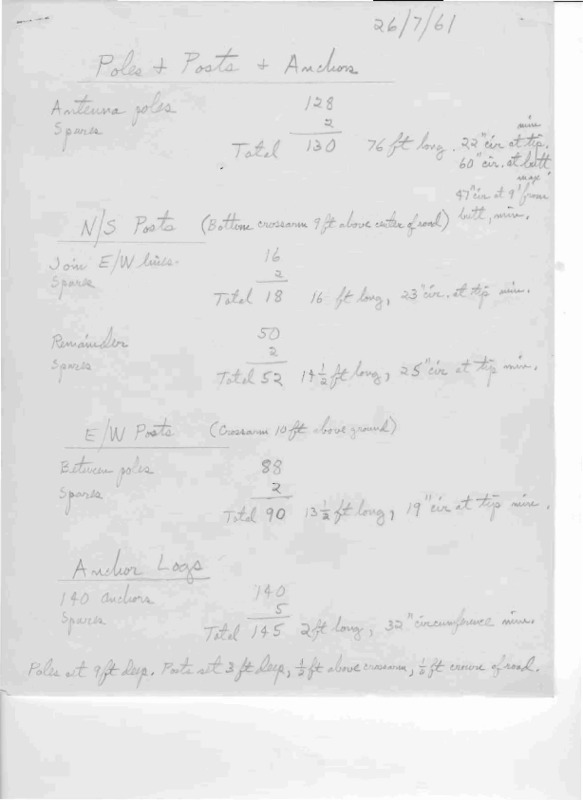 26/7/61
Poles + Posts + Anchors
Antenna poles 128
Spares 2
Total 130 76 ft long. 22" cir at tip. min
60" cir. at butt
max.
47" cir at 9' from
butt, min.
N/S Posts (Bottom crossarm 9 ft above center of road)
Join E/W lines. 16
Spares 2
Total 18 16 ft long, 23" cir. at tip min.
Remainder 50
Spares 2
Total 52 14 1/2 ft long, 25" cir at tip min.
E/W Posts (Crossarm 10 ft above ground)
Between poles 88
Spares 2
Total 90 13 1/2 ft long, 19" cir at tip min.
Anchor Logs
140 anchors 140
Spares 5
Total 145 2 ft long, 32" circumference min.
Poles set 9 ft deep. Posts set 3 ft deep, 1/2 ft above crossarm, 1/2 ft crown of road.